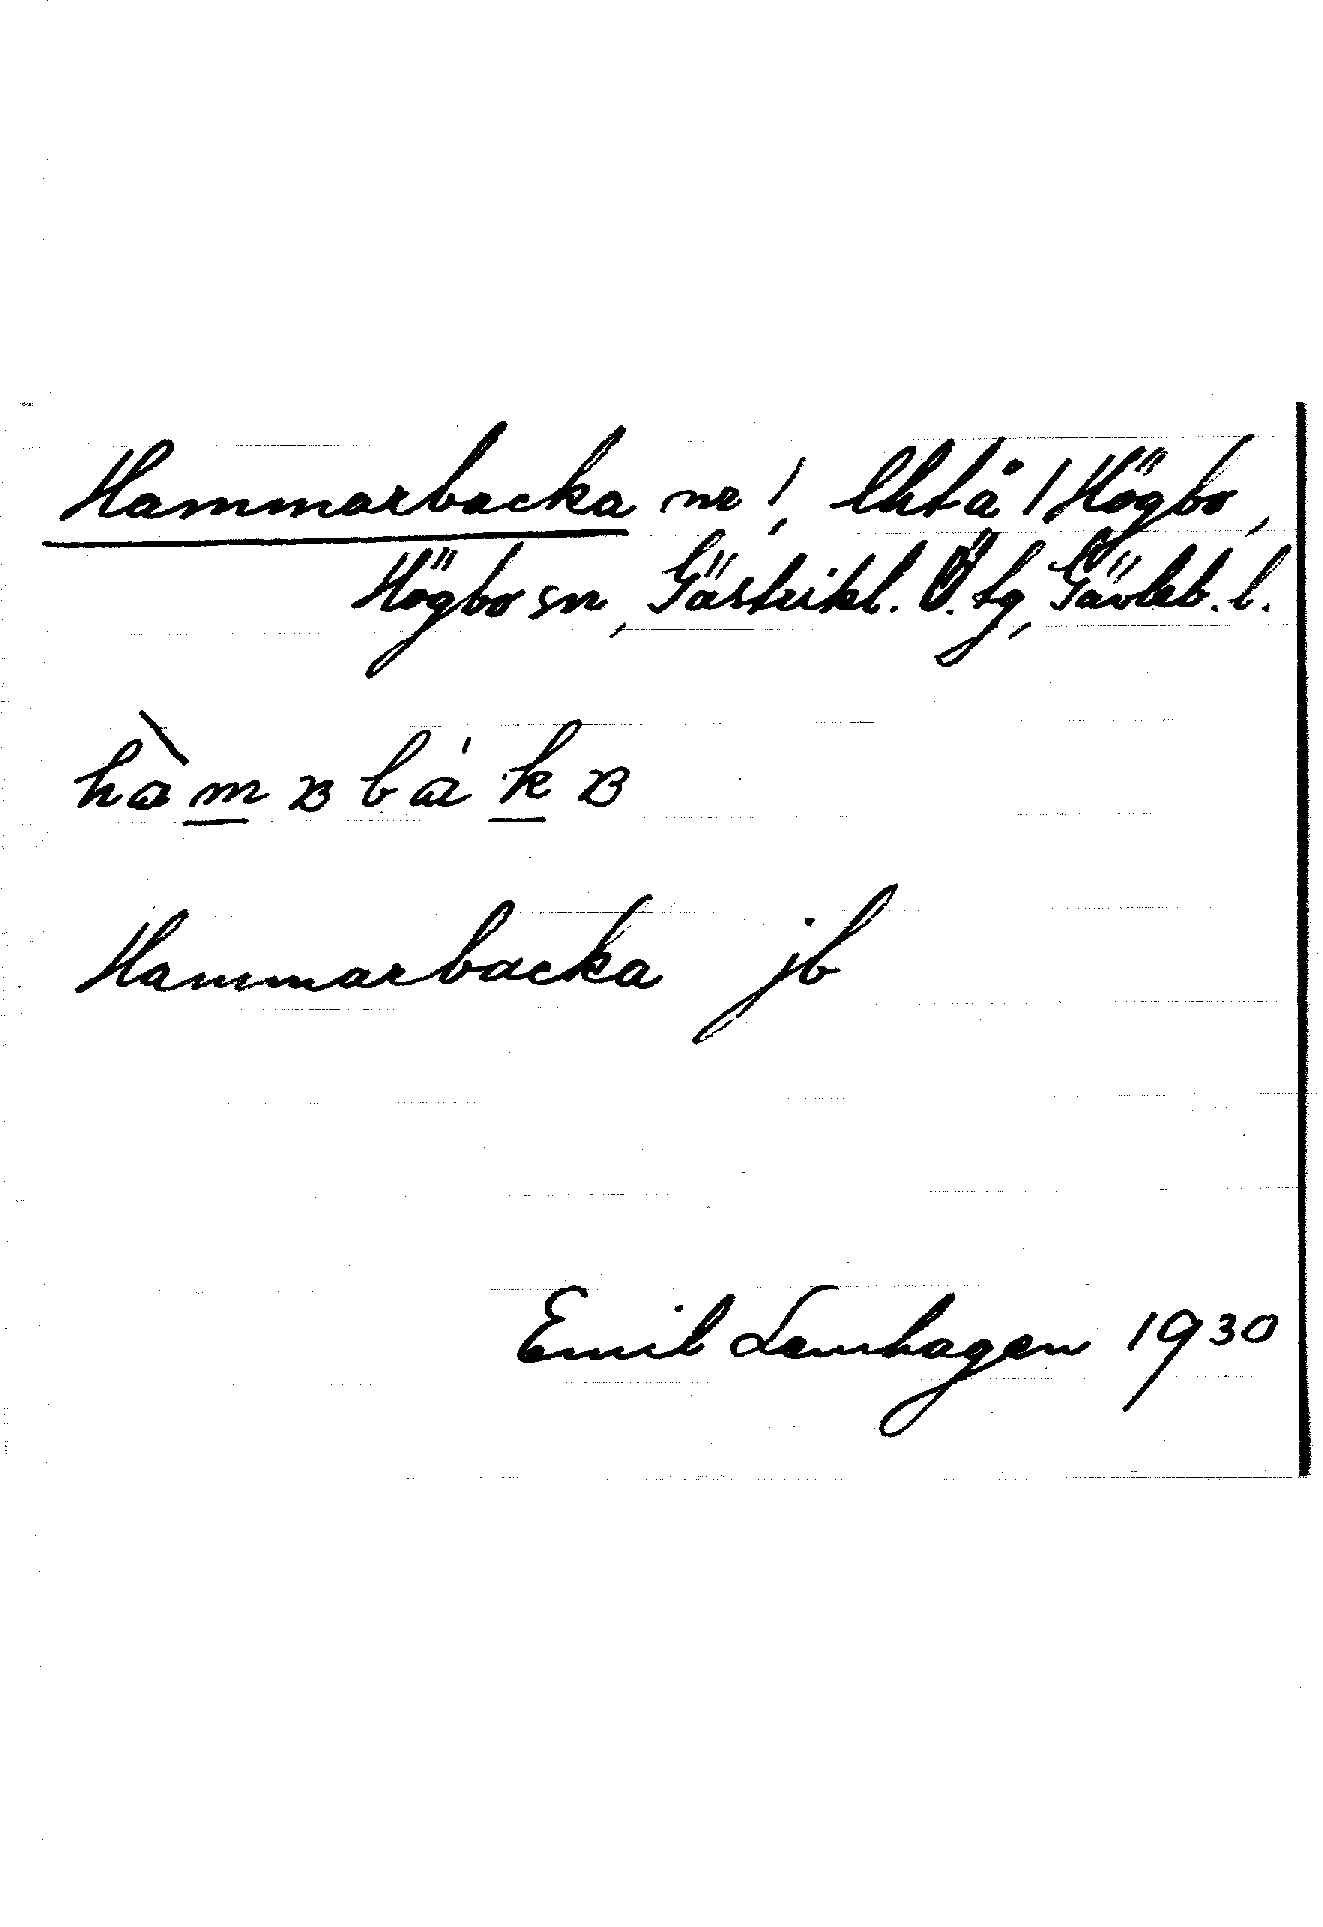 Hammarbacka nr 1, lht å 1 Högbo,
Högbo sn, Gästrikl. Ö. tg, Gävleb. l.
hàmɞbákɞ
Hammarbacka jb
Emil Lennhagen 1930